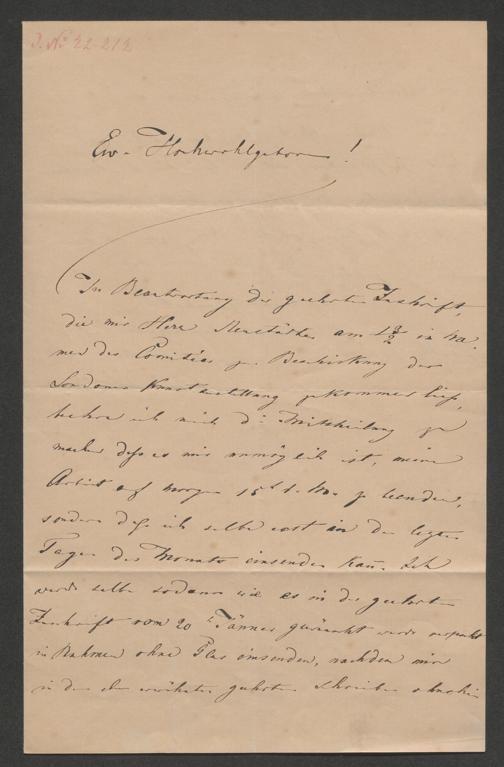 J. No 22-212
Ew. Hochwohlgeboren !
In Beantwortung der geehrten Zuschrift,
die mir Herr am in Na-
men des Comitées zur Beschickung der
Londoner Kunstausstellung zukommen ließ,
beehre ich mich die Mittheilung zu
machen daß es mir unmöglich ist, meine
Arbeit auf morgen 15t d. Mo. zu senden,
sondern daß ich selbe erst in den letzten
Tagen des Monats einsenden kann. Ich
werde selbe sodann wie es in der geehrten
Zuschrift vom 20t Jänner gewünscht wurde verpackt
in Rahmen ohne Glas einsenden, nachdem mir
in dem oben erwähnten geehrten Schreiben ohnehin